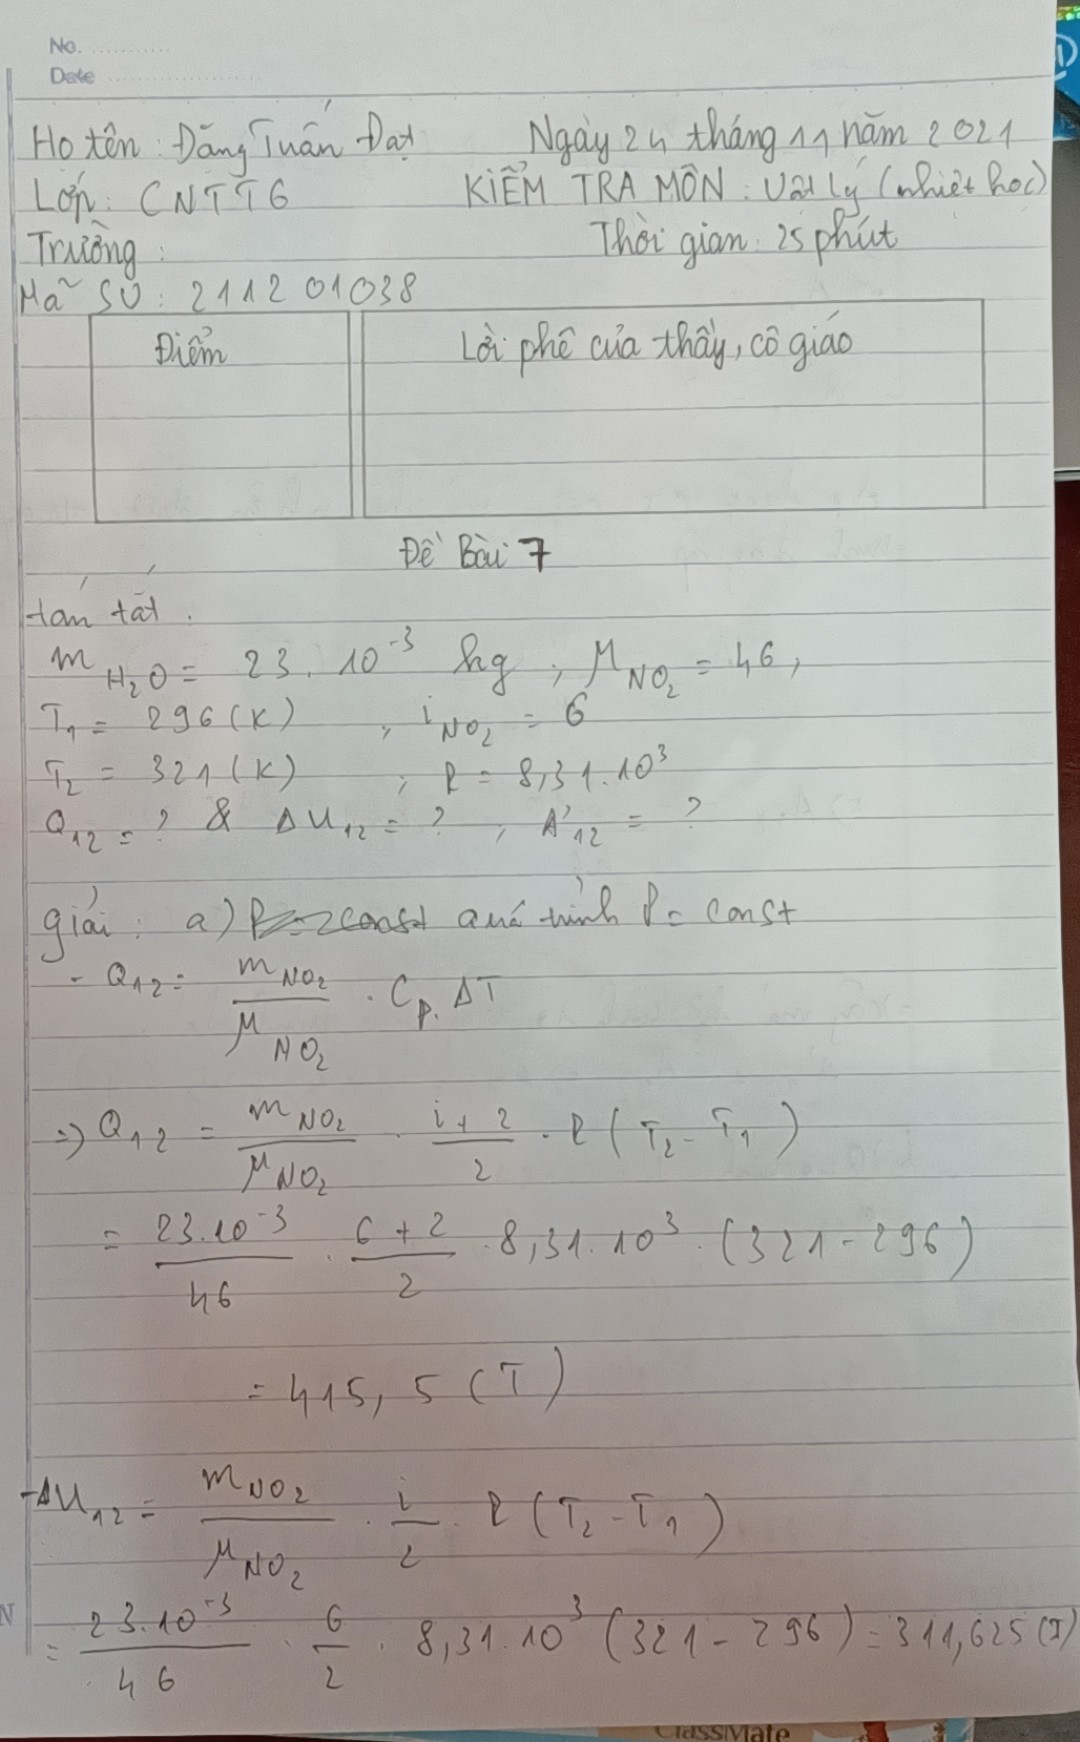 No. ............
Date ....................
Họ tên: Đăng Tuấn Đạt Ngày 24 tháng 11 năm 2021
Lớp: CNTT6 KIỂM TRA MÔN: Vật Lý (nhiệt học)
Trường: Thời gian: 25 phút
Mã Số: 211201038
Điểm Lời phê của thầy, cô giáo
Đề Bài 7
tóm tắt.
m H₂O = 23.10⁻³ kg ; μ NO₂ = 46,
T₁ = 296 (K) ; i NO₂ = 6
T₂ = 321 (K) ; R = 8,31.10³
Q₁₂ = ? & ΔU₁₂ = ? ; A'₁₂ = ?
giải: a) P = const quá trình P = const
- Q₁₂ = m NO₂ / μ NO₂ . Cp. ΔT
=> Q₁₂ = m NO₂ / μ NO₂ . i+2 / 2 . R (T₂ - T₁)
= 23.10⁻³ / 46 . 6+2 / 2 . 8,31.10³ . (321 - 296)
= 415,5 (J)
- ΔU₁₂ = m NO₂ / μ NO₂ . i / 2 . R (T₂ - T₁)
= 23.10⁻³ / 46 . 6 / 2 . 8,31.10³ (321 - 296) = 311,625 (J)
ClassMate